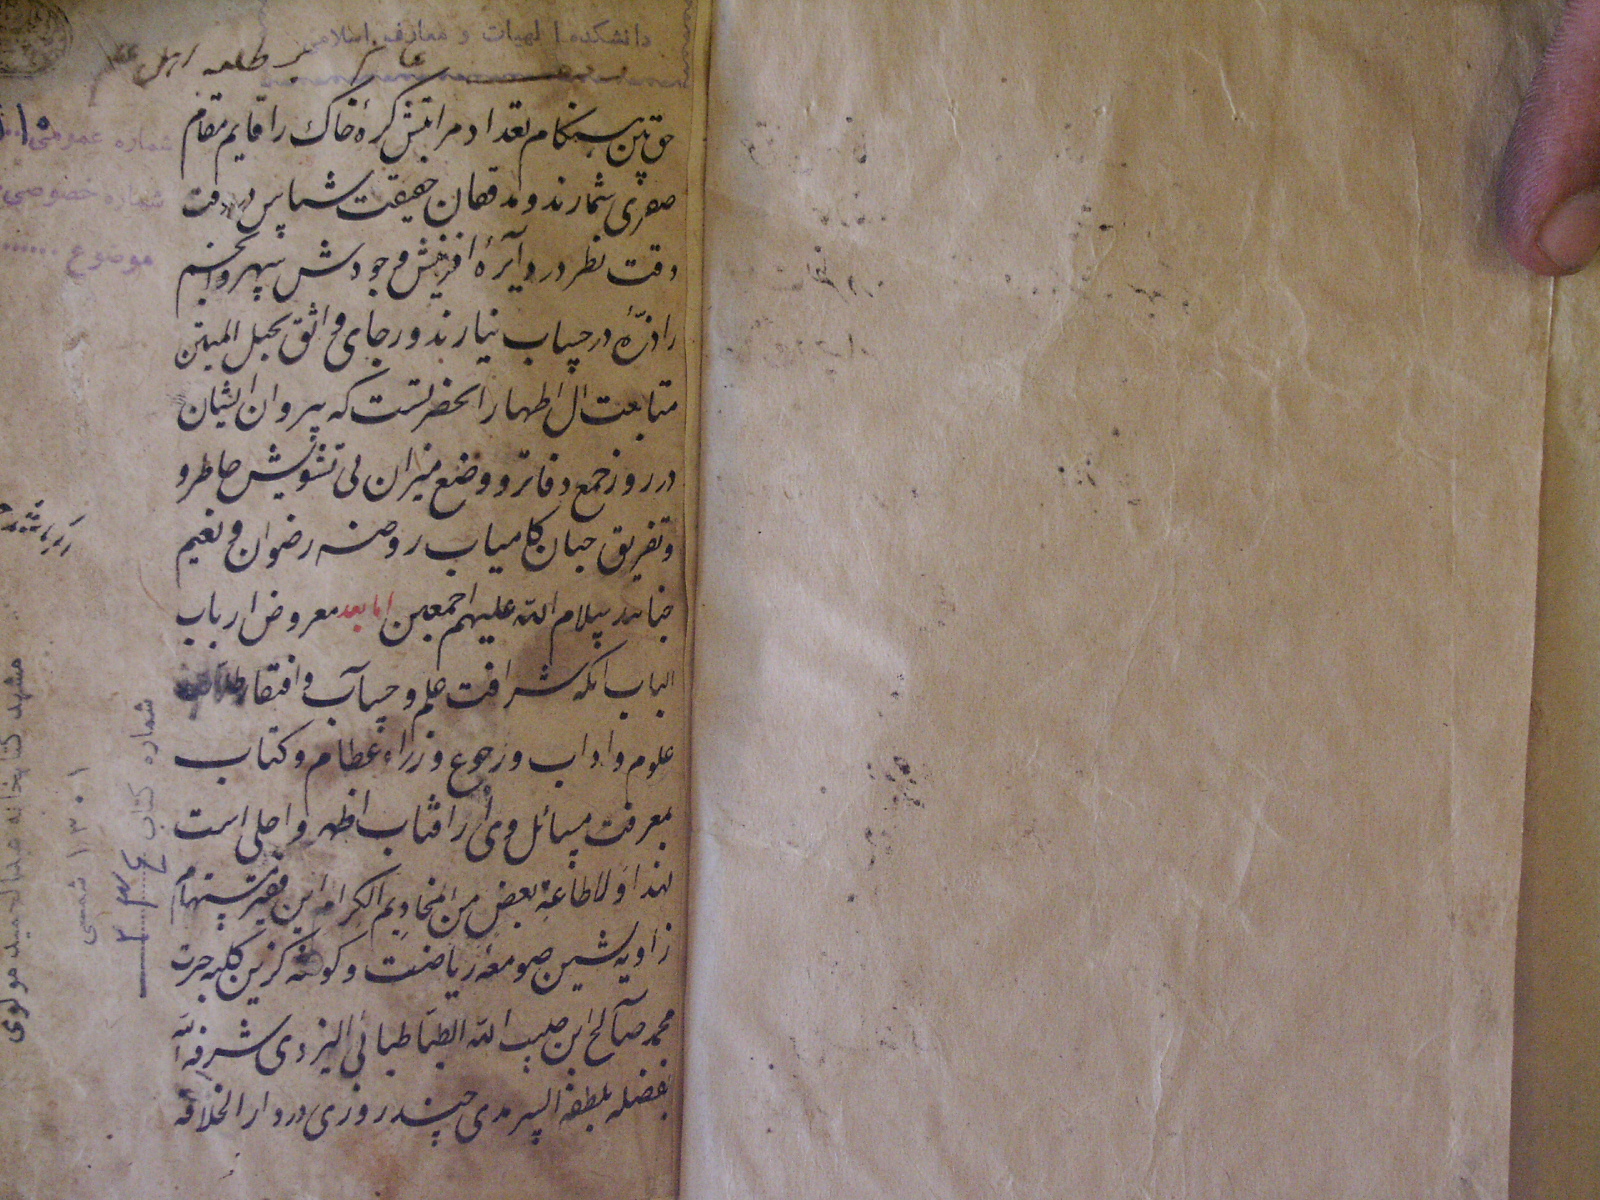 دانشکده الهیات و معارف اسلامی
حق بین بهنگام تعداد مراتبش کرهٔ خاک را قایم مقام
صفری شمارند و مدققان حقیقت شناس در
دقت نظر در دایرهٔ افرینش وجودش سپهر و انجم
را ذرّهٔ در حساب نیارند و رجای واثق بحبل المتین
متابعت ال اطهار انحضرتست که پیروان ایشان
در روز جمع دفاتر و وضع میزان بی تشویش خاطر و
و تفریق جبان کامیاب روضه رضوان و نعیم
جنانند سلام الله علیهم اجمعین اما بعد معروض ارباب
الباب انکه شرافت علم و حساب و افتقار
علوم و اداب و رجوع وزراء عظام و کتاب
بمعرفت مسائل وی از افتاب اظهر و اجلی است
لهذا اولا طاعة بعض من المخادیم الکرام این فقیر مستهام
زاویه نشین صومعهٔ ریاضت و کوشه کزین کلبه حیرت
محمد صالح ابن حبیب الله الطباطبائی الیزدی شرفه الله
بفضله بلطفه السرمدی چند روزی در دار الخلافه
۱۱۰
شماره عمومی
شماره خصوصی
موضوع ......
شماره کتاب
۱۳۰۱ شمسی
مشهد کتابخانه عبدالحمید مولوی